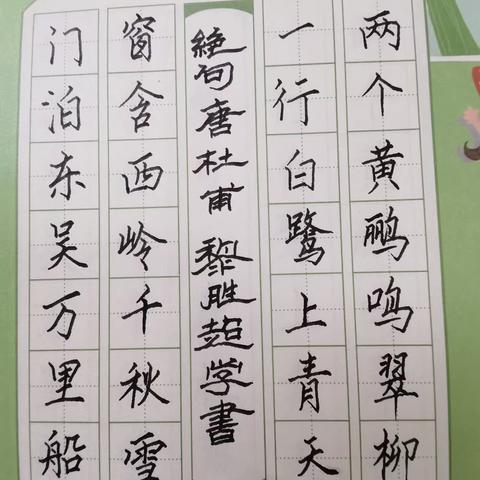 两个黄鹂鸣翠柳
一行白鹭上青天
絶句唐杜甫 黎胜超学書
窗含西岭千秋雪
门泊东吴万里船